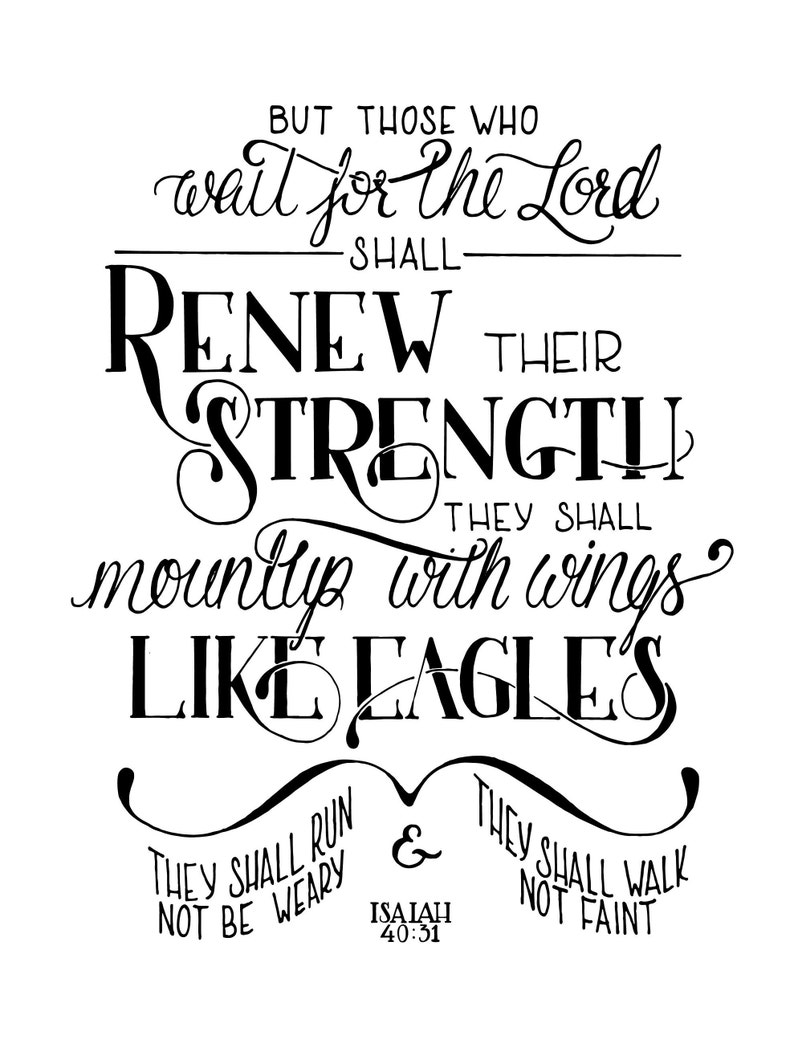 BUT THOSE WHO
wait for the Lord
SHALL
RENEW THEIR
STRENGTH
THEY SHALL
mount up with wings
LIKE EAGLES
THEY SHALL RUN
NOT BE WEARY
&
THEY SHALL WALK
NOT FAINT
ISAIAH
40:31